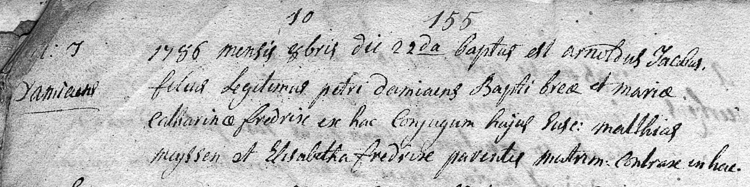 10 155
1786 mensis 8bris die 22da baptus est arnoldus Jacobus
Damiaens filius legitimus petri damiaens Bapti breæ et mariæ
Catharinæ fredrix ex hac Conjugum hujus Susc: matthias
meyssen et Elisabetha fredrix parentes matrim: Contraxe in hac